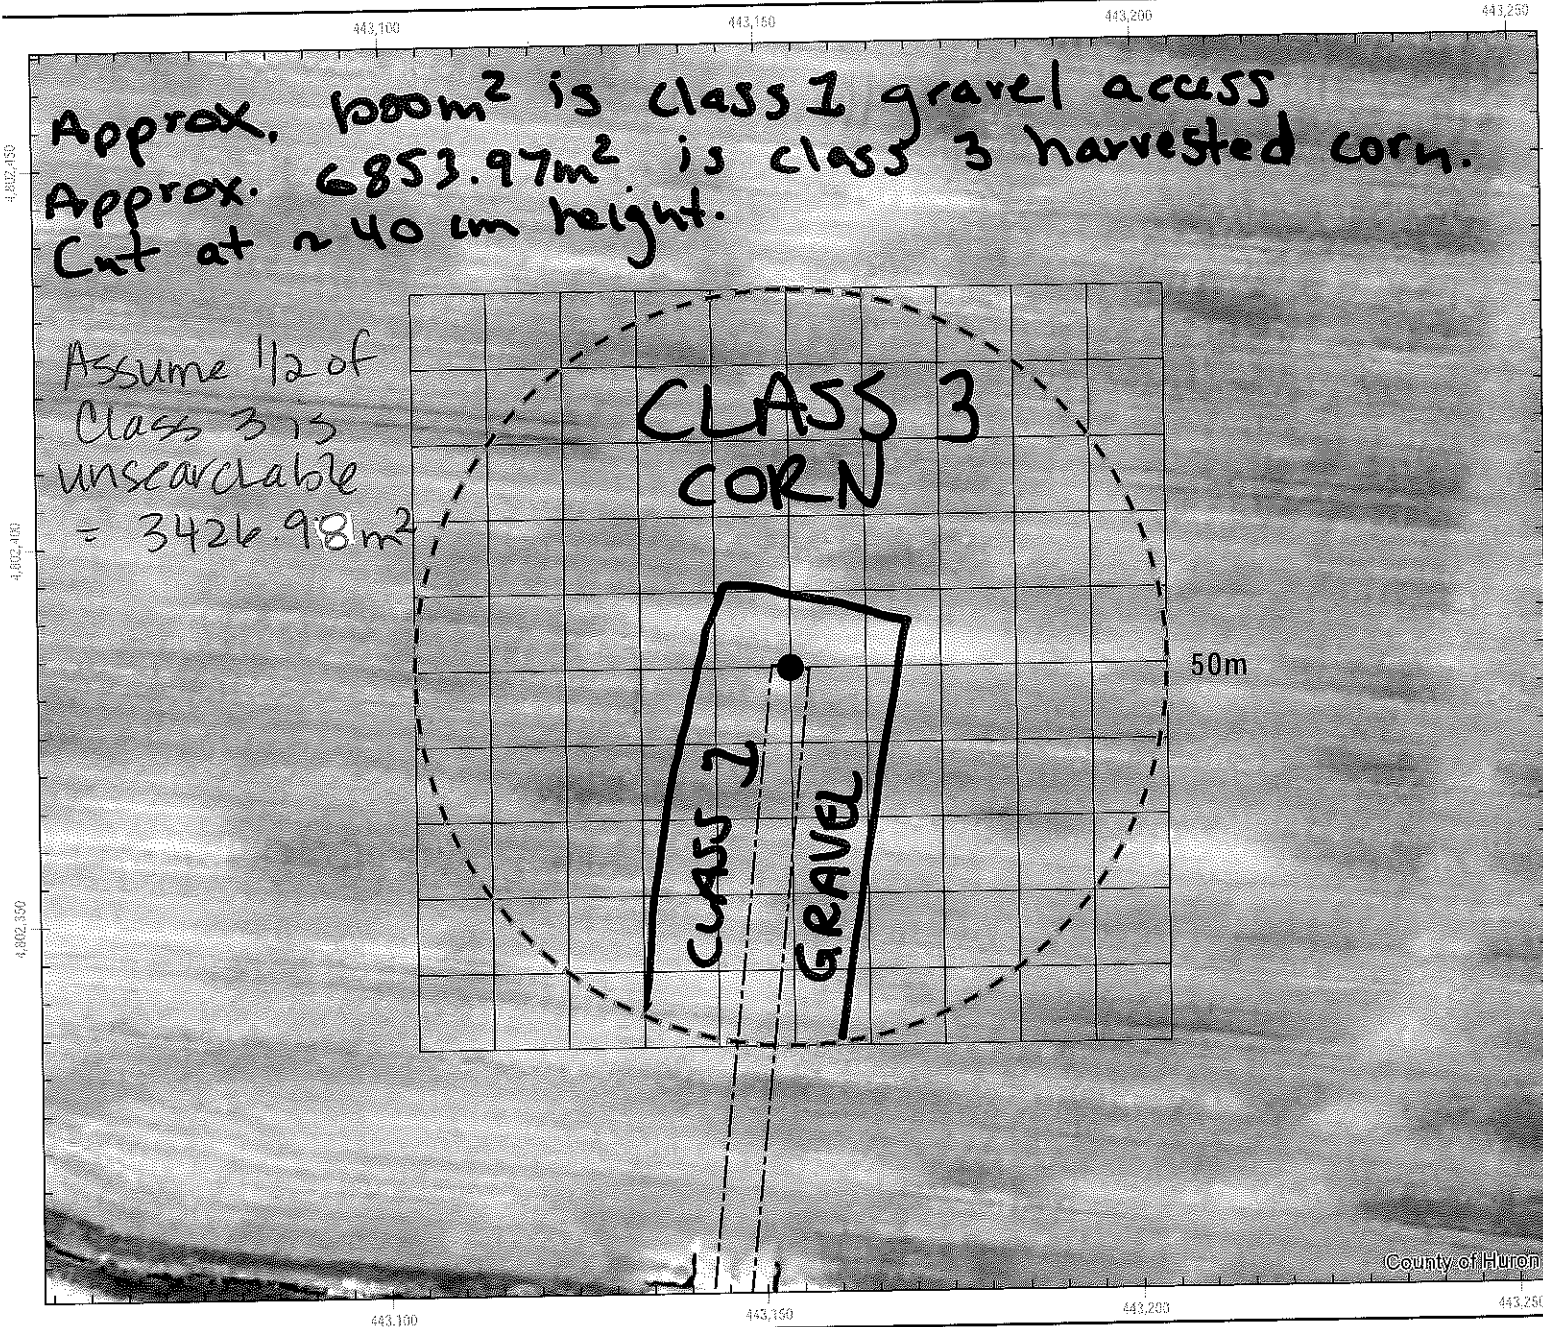 443,100 443,150 443,200 443,250
Approx. 1000m² is class 1 gravel access
Approx. 6853.97m² is class 3 harvested corn.
Cut at ~ 40 cm height.
4,802,450
Assume 1/2 of
Class 3 is
unsearchable
= 3426.98m²
4,802,400
CLASS 3
CORN
50m
CLASS 1
GRAVEL
4,802,350
County of Huron
443,100 443,150 443,200 443,250